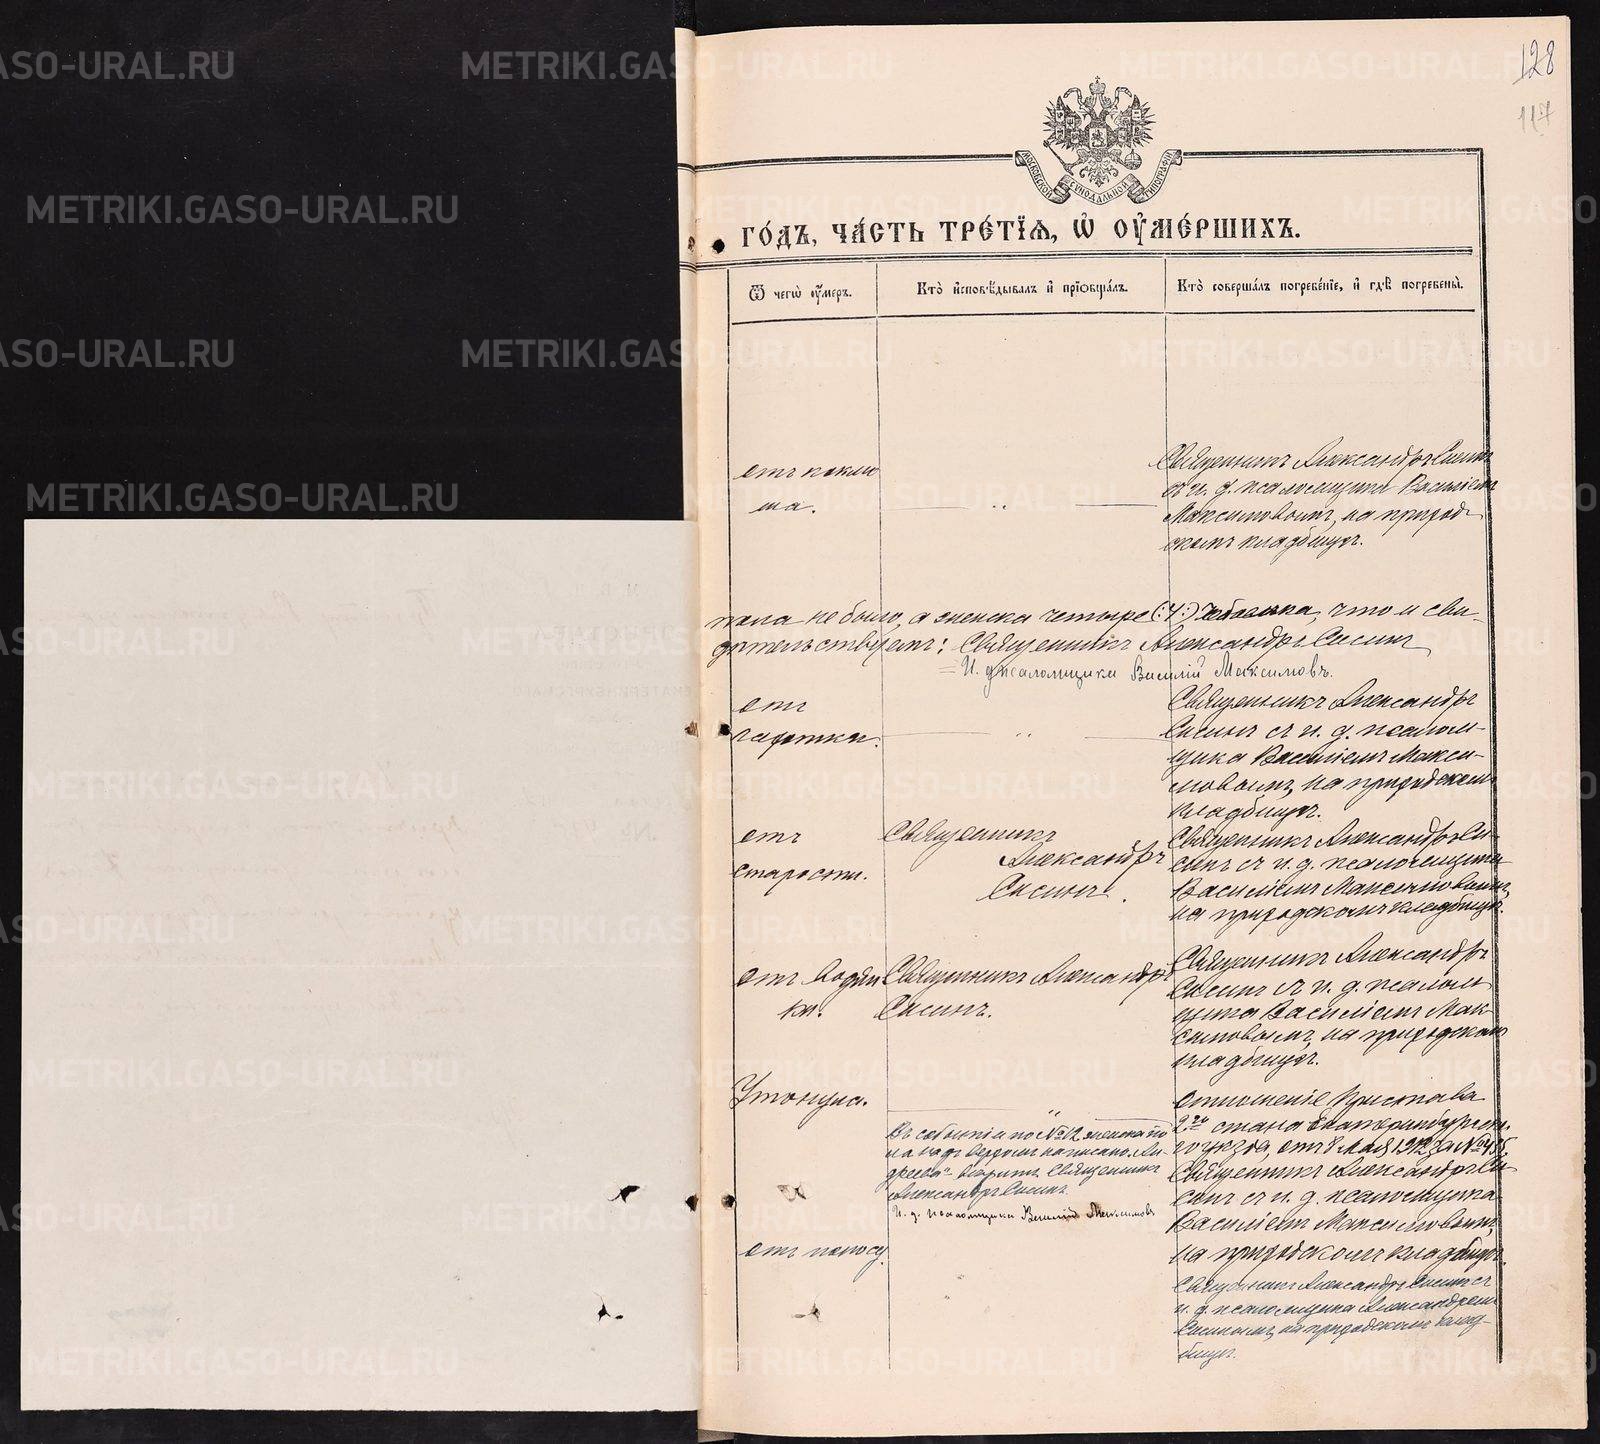 128
117
МОСКОВСКОЙ СѴНОДАЛЬНОЙ ТИПОГРАФІИ
ГО́ДЪ, ЧА́СТЬ ТРЕ́ТЇѦ, Ѽ ОУ҆МЕ́РШИХЪ.
Ѿ чегѡ̀ оу҆́меръ.
Кто̀ и҆сповѣ́дывалъ и҆ прїѡбща́лъ.
Кто̀ соверша́лъ погребе́нїе, и҆ гдѣ̀ погребены̀.
отъ коклю
ша.
Священникъ Александръ Сисинъ
съ и. д. псаломщика Василіемъ
Максимовымъ, на приход-
скомъ кладбищѣ.
пола не было, а женска четыре (:4:) человѣка, что и сви-
дѣтельствуемъ: Священникъ Александръ Сисинъ
И. д. псаломщика Василій Максимовъ.
отъ
чахотки.
Священникъ Александръ
Сисинъ съ и. д. псалом-
щика Василіемъ Макси-
мовымъ, на приходскомъ
кладбищѣ.
отъ
старости.
Священникъ
Александръ
Сисинъ.
Священникъ Александръ Си-
синъ съ и. д. псаломщика
Василіемъ Максимовымъ,
на приходскомъ кладбищѣ.
отъ водян
ки.
Священникъ Александръ
Сисинъ.
Священникъ Александръ
Сисинъ съ и. д. псалом
щика Василіемъ Мак-
симовымъ, на приходскомъ
кладбищѣ.
Утонула.
Въ событіи по №12 женска по
ла надъ верхомъ написано
вѣрить. Священникъ
Александръ Сисинъ
И. д. псаломщика Василій Максимовъ
отношеніе Пристава
2го стана Екатеринбургска
го уѣзда, отъ 8 Мая 1912 за №
Священникъ Александръ Си-
синъ съ и. д. псаломщика
Василіемъ Максимовымъ,
на приходскомъ кладбищѣ.
отъ поносу.
Священникъ Александръ Сисинъ съ
и. д. псаломщика Александромъ
Сисинымъ, на приходскомъ клад-
бищѣ.
METRIKI.GASO-URAL.RU